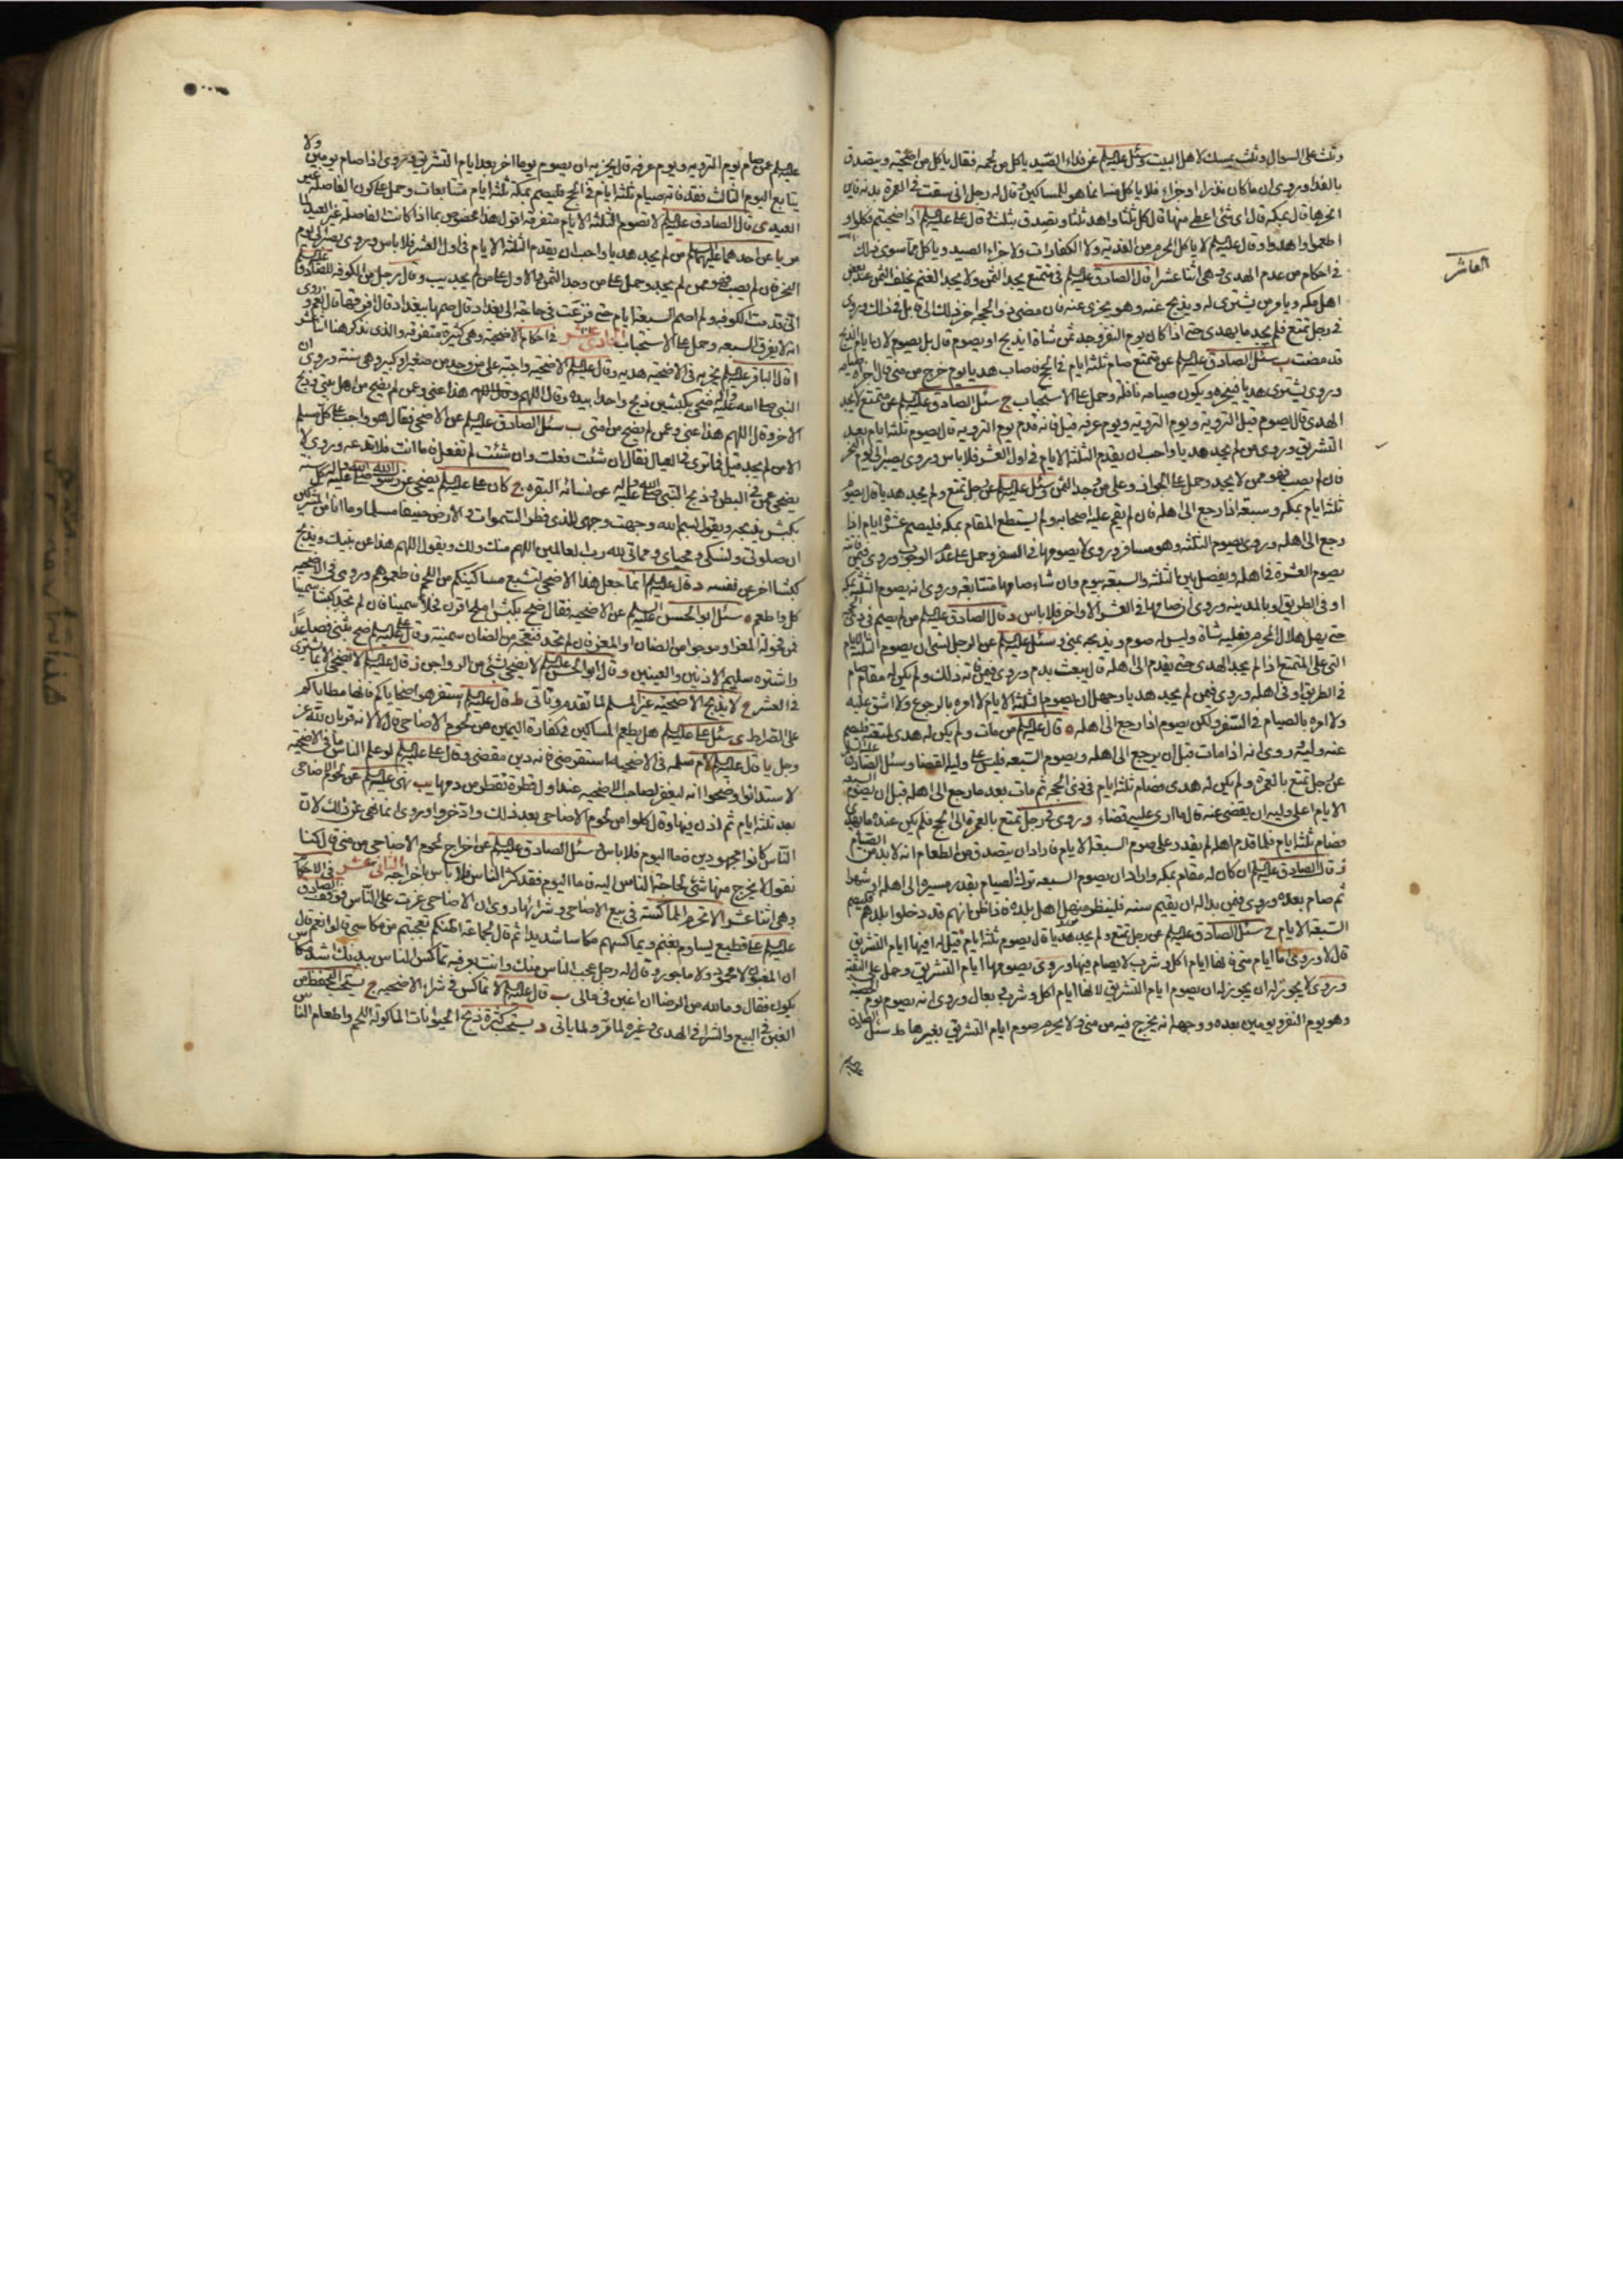 وثلث على السؤال وثلث يمسك لاهل البيت وسئل عليه السلم عن فداء الصيد ياكل من لحمه فقال ياكل من اضحيته ويتصدق
بالفداء وروى ان ما كان نذرا او جزاء فلا ياكل منها انما هو للمساكين وقال له رجل انى سقت فى العمرة بدنة فاين
انحرها قال بمكه قال اى شئ اعطى منها قال كل ثلثا واهد ثلثا وتصدق بثلث قال على عليه السلم اذا ضحيتم فكلوا و
اطعموا واهدوا وقال عليه السلم لا ياكل المحرم من الفدية ولا الكفارات ولا جزاء الصيد وياكل مما سوى ذلك
العاشر
فى احكام من عدم الهدى وهى اثنا عشر ا قال الصادق عليه السلم فى متمتع يجد الثمن ولا يجد الغنم يخلف الثمن عند بعض
اهل مكه ويامر من يشترى له ويذبح عنه وهو يجزى عنه فان مضى ذو الحجه اخر ذلك الى قابل من ذى الحجه وروى
فى رجل تمتع فلم يجد ما يهدى حتى اذا كان يوم النفر وجد ثمن شاة ايذبح او يصوم قال بل يصوم لان ايام الذبح
قد مضت ب سئل الصادق عليه السلم عن متمتع صام ثلثة ايام فى الحج ثم اصاب هديا يوم خرج من منى قال اجزاه صيامه
وروى يشترى هديا فينحره ويكون صيامه نافلة وحمل على الاستحباب ج سئل الصادق عليه السلم عن متمتع لا يجد
الهدى قال يصوم قبل التروية ويوم التروية ويوم عرفه قيل فانه قدم يوم الترويه قال يصوم ثلثة ايام بعد
التشريق وروى من لم يجد هديا واحب ان يقدم الثلثة الايام فى اول العشر فلا باس وروى يصبر الى يوم النحر
فان لم يصب فهو ممن لا يجد وحمل على الجواز وعلى من وجد الثمن وسئل عليه السلم عن رجل تمتع ولم يجد هديا قال يصوم
ثلثة ايام بمكه وسبعة اذا رجع الى اهله فان لم يقم عليه اصحابه ولم يستطع المقام بمكه فليصم عشرة ايام اذا
رجع الى اهله وروى يصوم الثلثة وهو مسافر وروى لا يصومها فى السفر وحمل على عدم الوجوب وروى فيمن فاته
يصوم العشرة فى اهله ويفصل بين الثلثة والسبعة بيوم وان شاء صامها متتابعة وروى انه يصوم الثلثة بمكه
او فى الطريق او بالمدينه وروى ان صامها فى العشر الاواخر فلا باس د قال الصادق عليه السلم من لم يصم فى ذى الحجة
حتى يهل هلال المحرم فعليه شاة وليس له صوم ويذبحه بمنى وسئل عليه السلم عن الرجل نسى ان يصوم الثلثة الايام
التى على المتمتع اذا لم يجد الهدى حتى يقدم الى اهله قال يبعث بدم وروى فيمن فاته ذلك ولم يكن له مقام صام
فى الطريق او فى اهله وروى فيمن لم يجد هديا وجهل ان يصوم الثلثة الايام لا امره بالرجوع ولا اشق عليه
ولا امره بالصيام فى السفر ولكن يصوم اذا رجع الى اهله ه قال عليه السلم من مات ولم يكن له هدى لمتعته فليصم
عنه وليه وروى انه اذا مات قبل ان يرجع الى اهله ويصوم السبعه فليس على وليه القضا وسئل الصادق عليه السلم
عن رجل تمتع بالعمرة ولم يكن له هدى فصام ثلثة ايام فى ذى الحجة ثم مات بعد ما رجع الى اهله قبل ان يصوم السبعه
الايام اعلى وليه ان يقضى عنه قال ما ارى عليه قضاء و وروى فى رجل تمتع بالعمرة الى الحج فلم يكن عنده ما يهدى
فصام ثلثة ايام فلما قدم اهله لم يقدر على صوم السبعة الايام فاراد ان يتصدق من الطعام انه لا بد من الصيام
ز قال الصادق عليه السلم ان كان له مقام بمكه واراد ان يصوم السبعه ترك الصيام بقدر مسيره الى اهله او شهرا
ثم صام بعده وروى فيمن بدا له ان يقيم سنه فلينظر منهل اهل بلده فاذا ظن انهم قد دخلوا بلدهم فليصم
السبعة الايام ح سئل الصادق عليه السلم عن رجل تمتع ولم يجد هديا قال يصوم ثلثة ايام قيل له افيها ايام التشريق
قال لا وروى اما ايام منى فانها ايام اكل وشرب لا يصام فيها وروى يصومها ايام التشريق وحمل على التقية
وروى لا يجوز له ان يصوم ايام التشريق لانها ايام اكل وشرب وبعال وروى انه يصوم يوم الحصبه
وهو يوم النفر ويومين بعده ووجهه انه يخرج فيه من منى ولا يحرم صوم ايام التشريق بغيرها ط سئل الصادق
عليه السلم
عليه السلم عن صام يوم الترويه ويوم عرفة قال يجزيه ان يصوم يوما اخر بعد ايام التشريق وروى اذا صام يومين ولا
يتابع اليوم الثالث فقد فاته صيام ثلثة ايام فى الحج فليصم بمكه ثلثة ايام متتابعات وحمل على كون الفاصلة غير
العيد ى قال الصادق عليه السلم لا تصوم الثلثة الايام متفرقه اقول هذا مخصوص بما اذا كانت الفاصلة غير العيد لما
مر يا عن احدهما عليهما السلم من لم يجد هديا واحب ان يقدم الثلثة الايام فى اول العشر فلا باس وروى يصبر الى يوم
النحر فان لم يصب فهو ممن لم يجد وحمل على من وجد الثمن والاول على من لم يجد يب وقال رجل من الكوفه للصادق عليه السلم
انى قدمت الكوفه ولم اصم السبعة ايام حتى فزعت فى حاجة الى بغداد قال صمها ببغداد قال افرقها قال نعم وروى
انه لا يفرق السبعه وحمل على الاستحباب الحادى عشر فى احكام الاضحية وهى كثيرة متفرقه والذى نذكر هنا اثنا عشر
ا قال الباقر عليه السلم يجزيه فى الاضحيه هديه وقال عليه السلم الاضحية واجبة على من وجد من صغير او كبير وهى سنة وروى ان
النبى صلى الله عليه واله ضحى بكبشين ذبح واحدا بيده وقال اللهم هذا عنى وعن من لم يضح من اهل بيتى وذبح
الاخر وقال اللهم هذا عنى وعمن لم يضح من امتى ب سئل الصادق عليه السلم عن الاضحى فقال هو واجب على كل مسلم
الا من لم يجد قيل فما ترى فى العيال فقال ان شئت فعلت وان شئت لم تفعل فاما انت فلا تدعه وروى لا
يضحى عمن فى البطن وذبح النبى صلى الله عليه واله عن نسائه البقره ج كان على عليه السلم يضحى عن رسول الله صلى الله عليه واله كل سنة
بكبش يذبحه ويقول بسم الله وجهت وجهى للذى فطر السموات والارض حنيفا مسلما وما انا من المشركين
ان صلوتى ونسكى ومحياى ومماتى لله رب العالمين اللهم منك ولك ويقول اللهم هذا عن نبيك ويذبح
كبشا اخر عن نفسه د قال عليه السلم انما جعل هذا الاضحى لتشبع مساكينكم من اللحم فاطعموهم وروى فى الاضحيه
كل واطعم ه سئل ابو الحسن عليه السلم عن الاضحيه فقال ضح بكبش املح اقرن فحلا سمينا فان لم تجد كبشا سمينا
فمن فحولة المعز او موجوا من الضان او المعز فان لم تجد فنعجة من الضان سمينة وقال على عليه السلم ضح بثنى فصاعدا
واشتره سليم الاذنين والعينين وقال ابو الحسن عليه السلم لا يضحى بشئ من الدواجن ز قال عليه السلم لا يضحى الا بما يشترى
فى العشر ح لا يذبح الاضحية غير المسلم لما تقدم وياتى ط قال عليه السلم استفرهوا ضحاياكم فانها مطاياكم
على الصراط ى سئل على عليه السلم هل يطعم المساكين فى كفارة اليمين من لحوم الاضاحى قال لا لانه قربان لله عز
وجل يا قال عليه السلم لام سلمه فى الاضحيه استقرضى فانه دين مقضى وقال على عليه السلم لو علم الناس ما فى الاضحية
لاستدانوا وضحوا انه ليغفر لصاحب الاضحيه عند اول قطرة تقطر من دمها يب نهى عليه السلم عن لحوم الاضاحى
بعد ثلثة ايام ثم اذن فيها وقال كلوا من لحوم الاضاحى بعد ذلك وادخروا وروى انما نهى عن ذلك لان
الناس كانوا مجهودين فاما اليوم فلا باس وسئل الصادق عليه السلم عن اخراج لحوم الاضاحى من منى قال كنا
نقول لا يخرج منها شئ لحاجة الناس اليه فاما اليوم فقد كثر الناس فلا باس باخراجه الثانى عشر فى الاحكام
وهى اثنا عشر ا لا تحرم المماكسة فى بيع الاضاحى وشرائها وروى ان الاضاحى عزت على الناس فوقف الصادق
عليه السلم على قطيع يساوم بغنم ويماكسهم مكاسا شديدا ثم قال لجماعة اظنكم تعجبتم من مكاسى قالوا نعم قال
ان المغبون لا محمود ولا ماجور وقال له رجل عجب الناس منك وانت بعرفه تماكس الناس ببدنك اشد مكاس
يكون فقال وما لله من الرضا ان اغبن فى مالى ب قال عليه السلم لا تماكس فى شراء الاضحيه ج يستحب التحفظ من
الغبن فى البيع والشراء فى الهدى وغيره لما مر ولما ياتى د يستحب كثرة ذبح الحيوانات الماكولة اللحم واطعام الناس